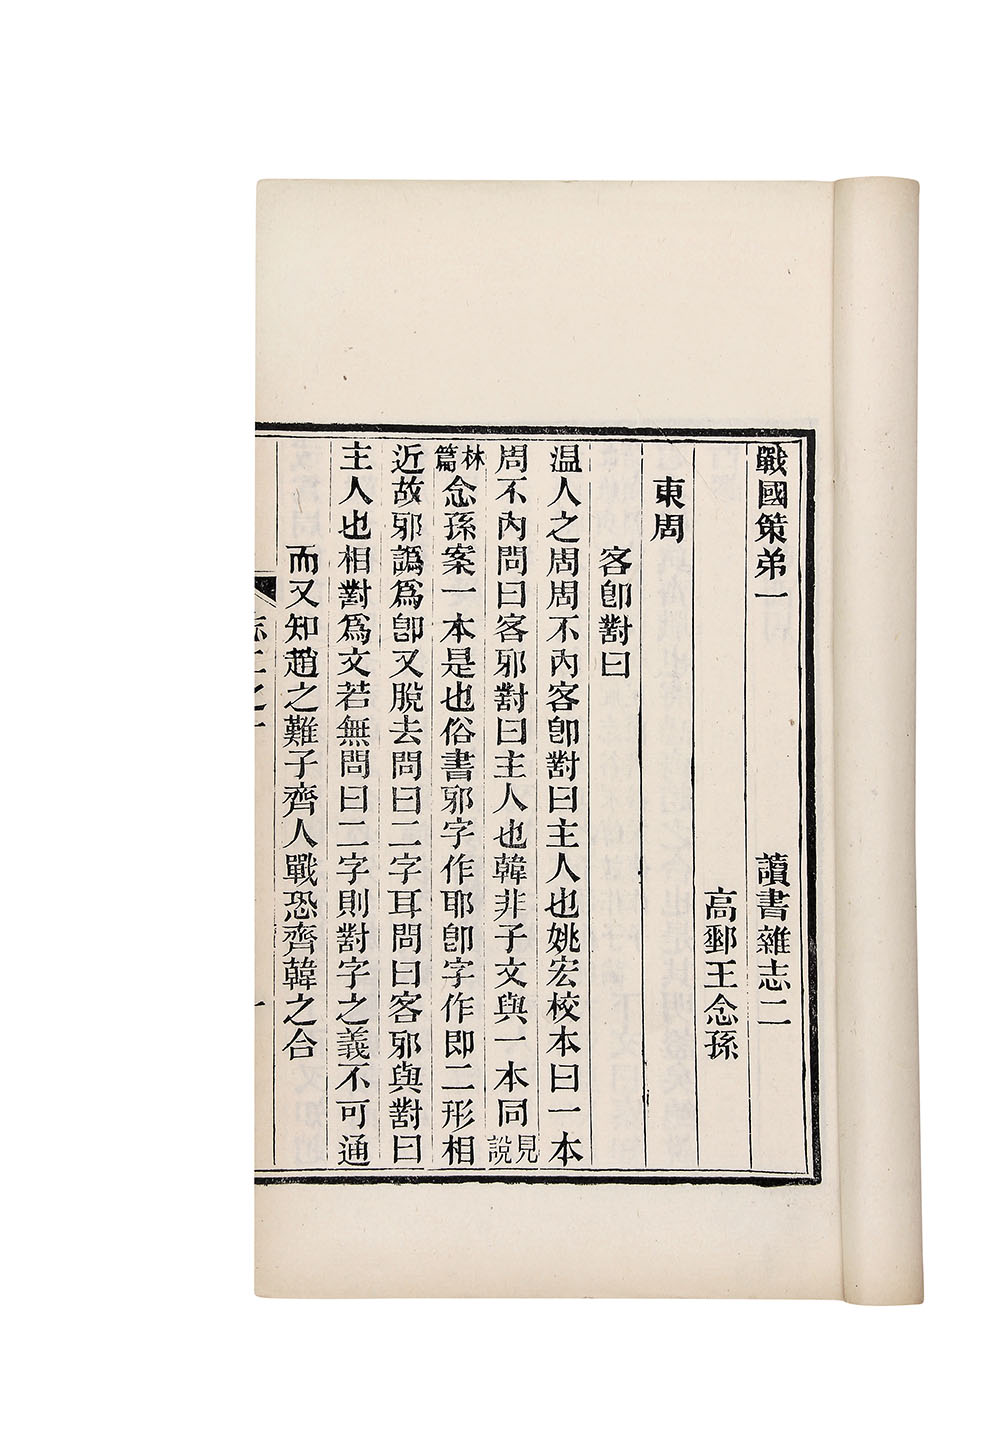 戰國策弟一 讀書雜志二
高郵王念孫
東周
客卽對曰
温人之周周不內客卽對曰主人也姚宏校本曰一本
周不內問曰客邪對曰主人也韓非子文與一本同見說
林篇念孫案一本是也俗書邪字作耶卽字作即二形相
近故邪譌爲卽又脫去問曰二字耳問曰客邪與對曰
主人也相對爲文若無問曰二字則對字之義不可通
而又知趙之難子齊人戰恐齊韓之合